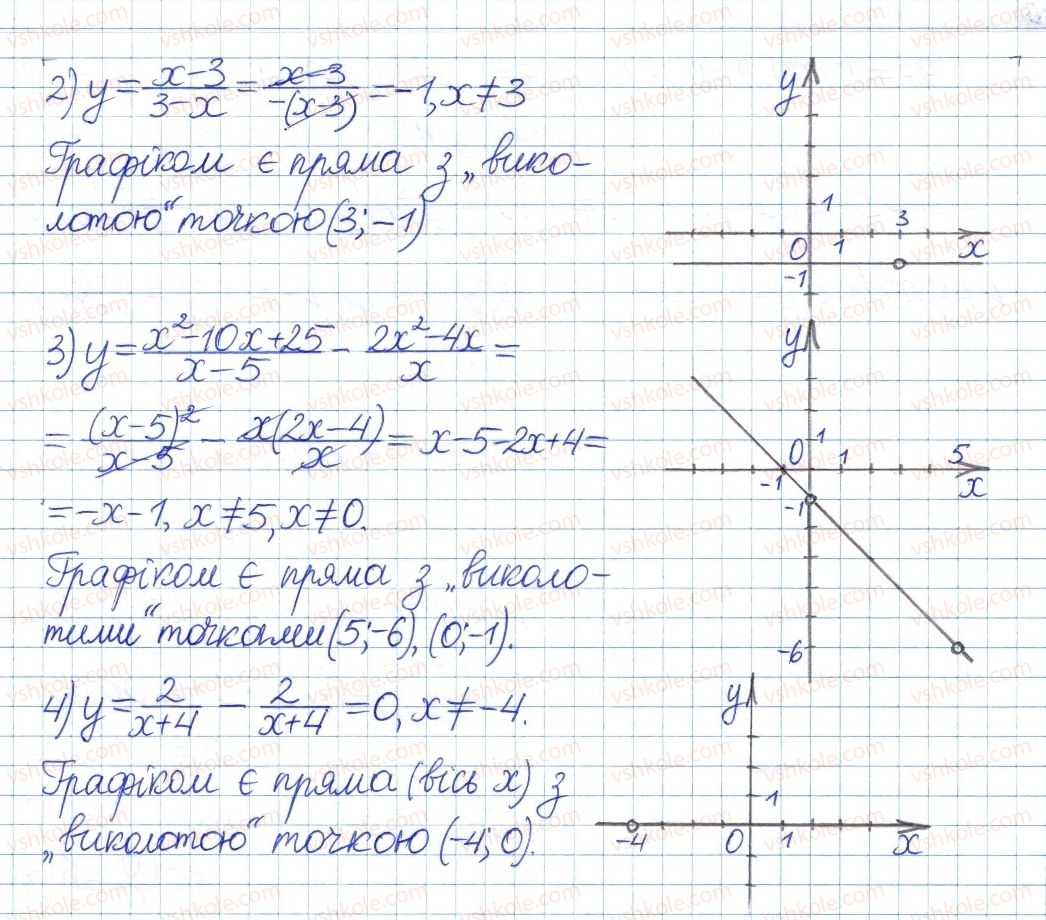 2) y = (x-3)/(3-x) = (x-3)/(-(x-3)) = -1, x ≠ 3
Графіком є пряма з „вико-
лотою“ точкою (3; -1)
y
1
3
0
1
x
-1
3) y = (x²-10x+25)/(x-5) - (2x²-4x)/x =
= (x-5)²/(x-5) - x(2x-4)/x = x-5-2x+4 =
= -x-1, x ≠ 5, x ≠ 0.
Графіком є пряма з „виколо-
тими“ точками (5; -6), (0; -1).
y
0
1
1
5
-1
x
-1
-6
4) y = 2/(x+4) - 2/(x+4) = 0, x ≠ -4.
Графіком є пряма (вісь x) з
„виколотою“ точкою (-4; 0).
y
1
-4
0
1
x
vshkole.com